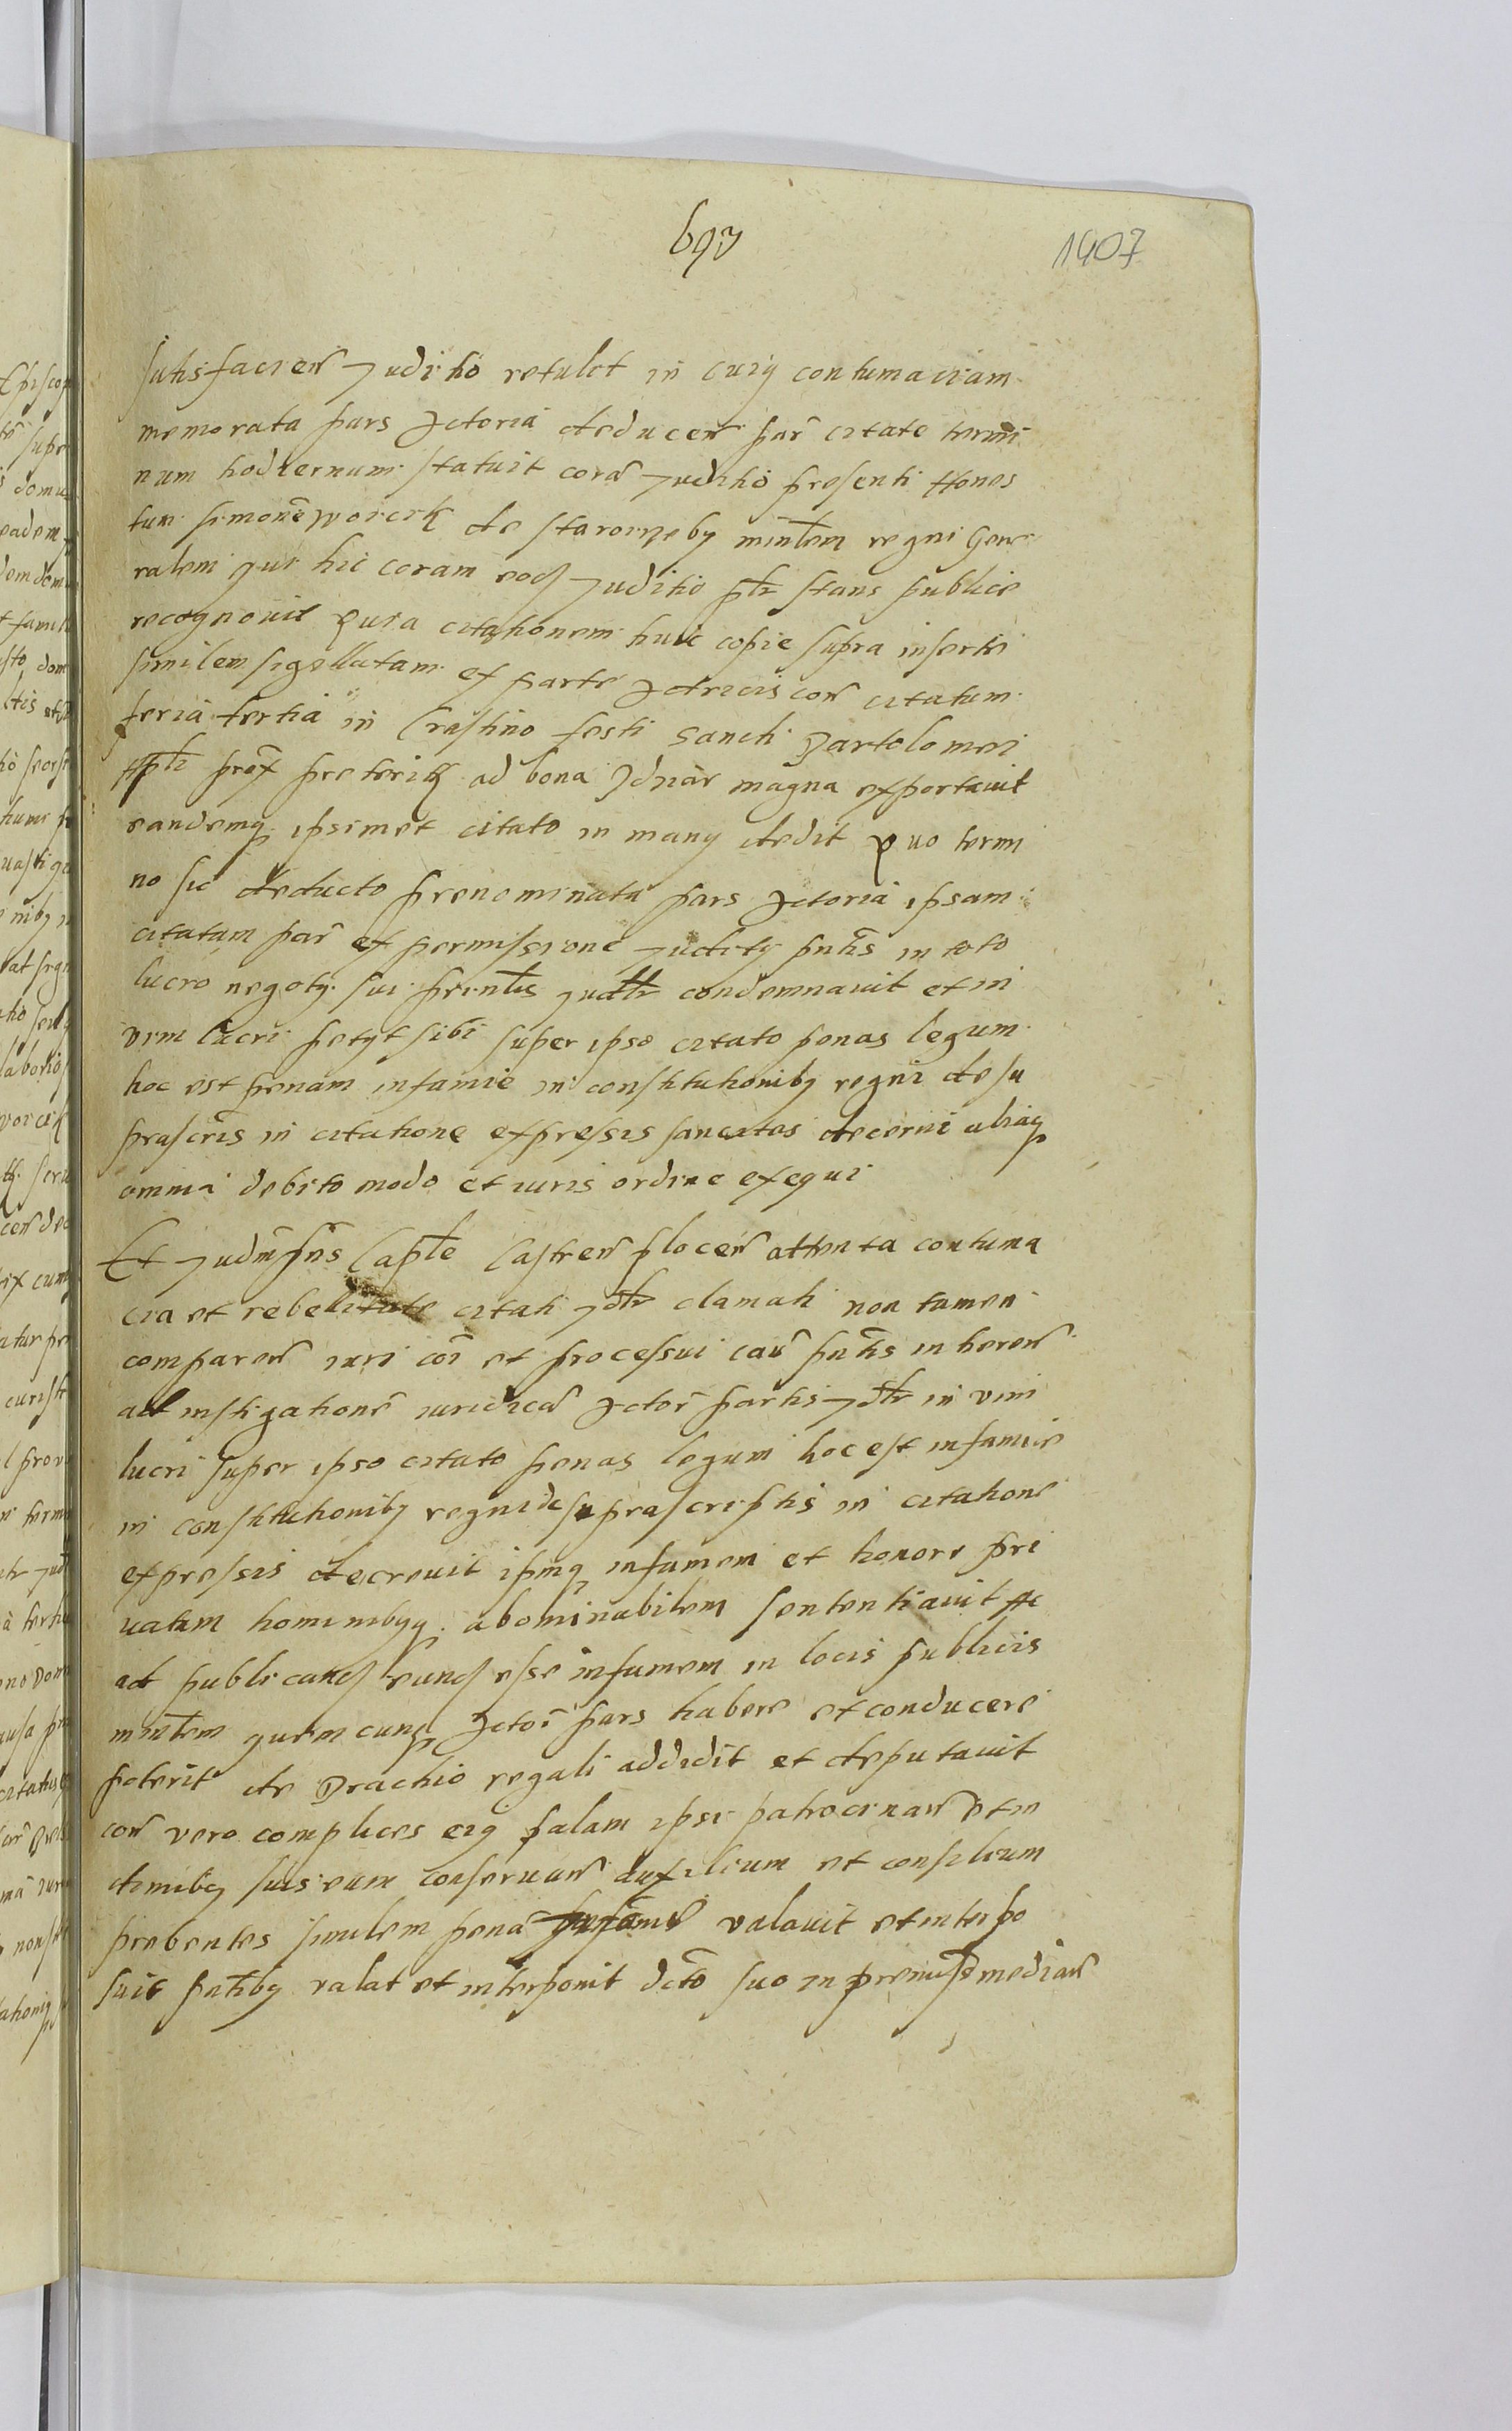 697
1407
satisfacien Juditio retulit in cuiq contumaciam
memorata pars Actoria deducen par citate termi
num hodiernum statuit corā Juditio presenti Hones
tum simonē woicik de staroizeby minlem regni Gene
ralem qui hic coram eod Juditio pltr stans publice
recognouit Quia citationem huic copie supra inserte
similem sigillatam ex parte Actricis con citatum
feria tertia in Crastino festi Sancti Bartolomei
Apli prox preteriti ad bona magna exportauit
eandemq ipsimet citato in manq dedit Quo termi
no sic deducto prenominata pars Actoria ipsam
citatam par ex permissione Juditij pntis in toto
lucro negotij sui prentis Judltr condemnauit et in
vim lucri petijt sibi super ipso citato penas legum
hoc est penam infamie in constitutionibq regni desu
prascris in citatione expressis sancitas decerni aliaq
omnia debito modo et iuris ordine exequi
Et Judm pns Caple Castren plocen attenta contuma
cia et rebelitate citati Jdtr clamati non tamen
comparen iuri coi et processui caus pntis in heren
ad instigationē iuridicā Actor partis Jdtr in vim
lucri super ipso citato penas legum hoc est infamie
in constitutionibq regni desuprascriptis in citatione
expressis decreuit ipmq infamem et honore pri
uatum hominibqq abominabilem sententiauit Ac
ad publicand eund esse infamem in locis publicis
minlem quemcunq Actor pars habere et conducere
poterit de Brachio regali addidit et deputauit
con vero complices eiq palam ipsi patrocinan et in
domibq suis eum conseruan auxilium et consilium
prebentes similem penā infamie valauit et interpo
suit pntibq valat et interponit dcto suo in premiss median